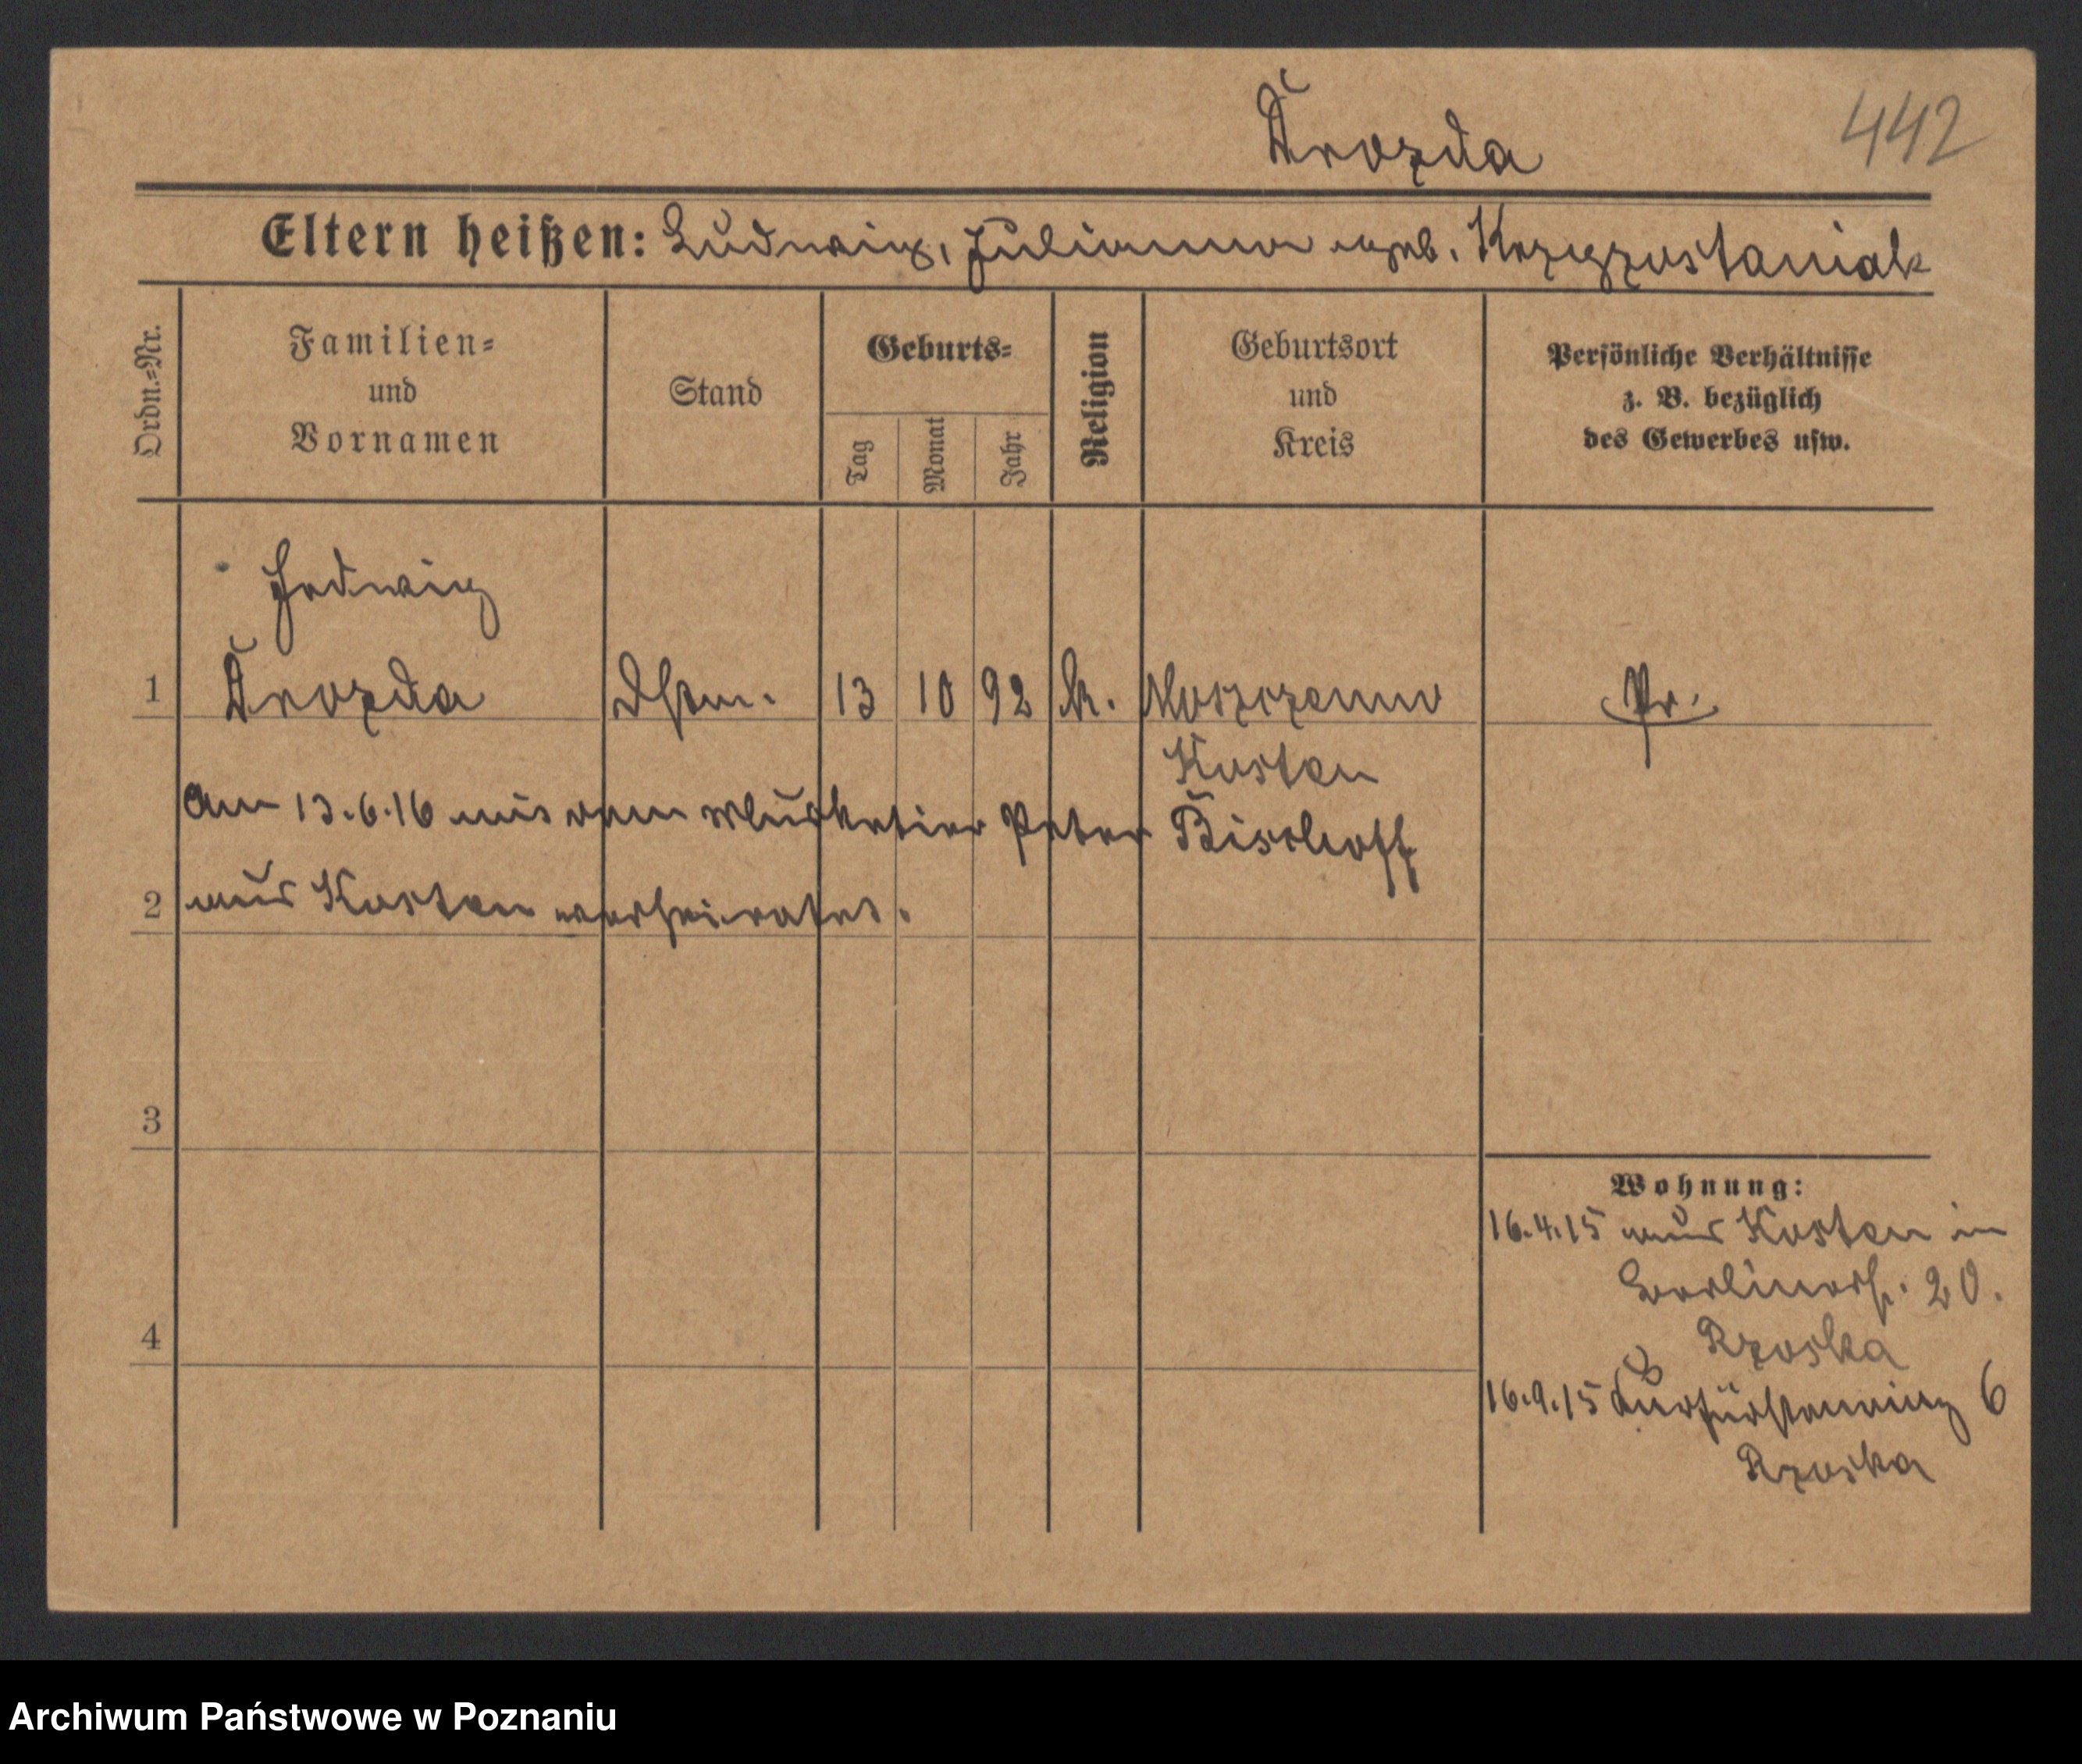 Drozda
442
Eltern heißen: Ludwig, Julianna geb.
Ordn.=Nr.
Familien=
und
Vornamen
Stand
Geburts=
Tag
Monat
Jahr
Religion
Geburtsort
und
Kreis
Persönliche Verhältnisse
z. B. bezüglich
des Gewerbes usw.
Hedwig
1 Drozda Dstm. 13 10 92 k. Pr.
Kosten
Am 13.6.16 mit dem Musketier Peter Bischoff
2 aus Kosten verheiratet.
3
Wohnung:
16.4.15 aus Kosten in
Berlinerstr. 20.
Rzoska
4
16.9.15 Kurfürstenring 6
Rzoska
Archiwum Państwowe w Poznaniu